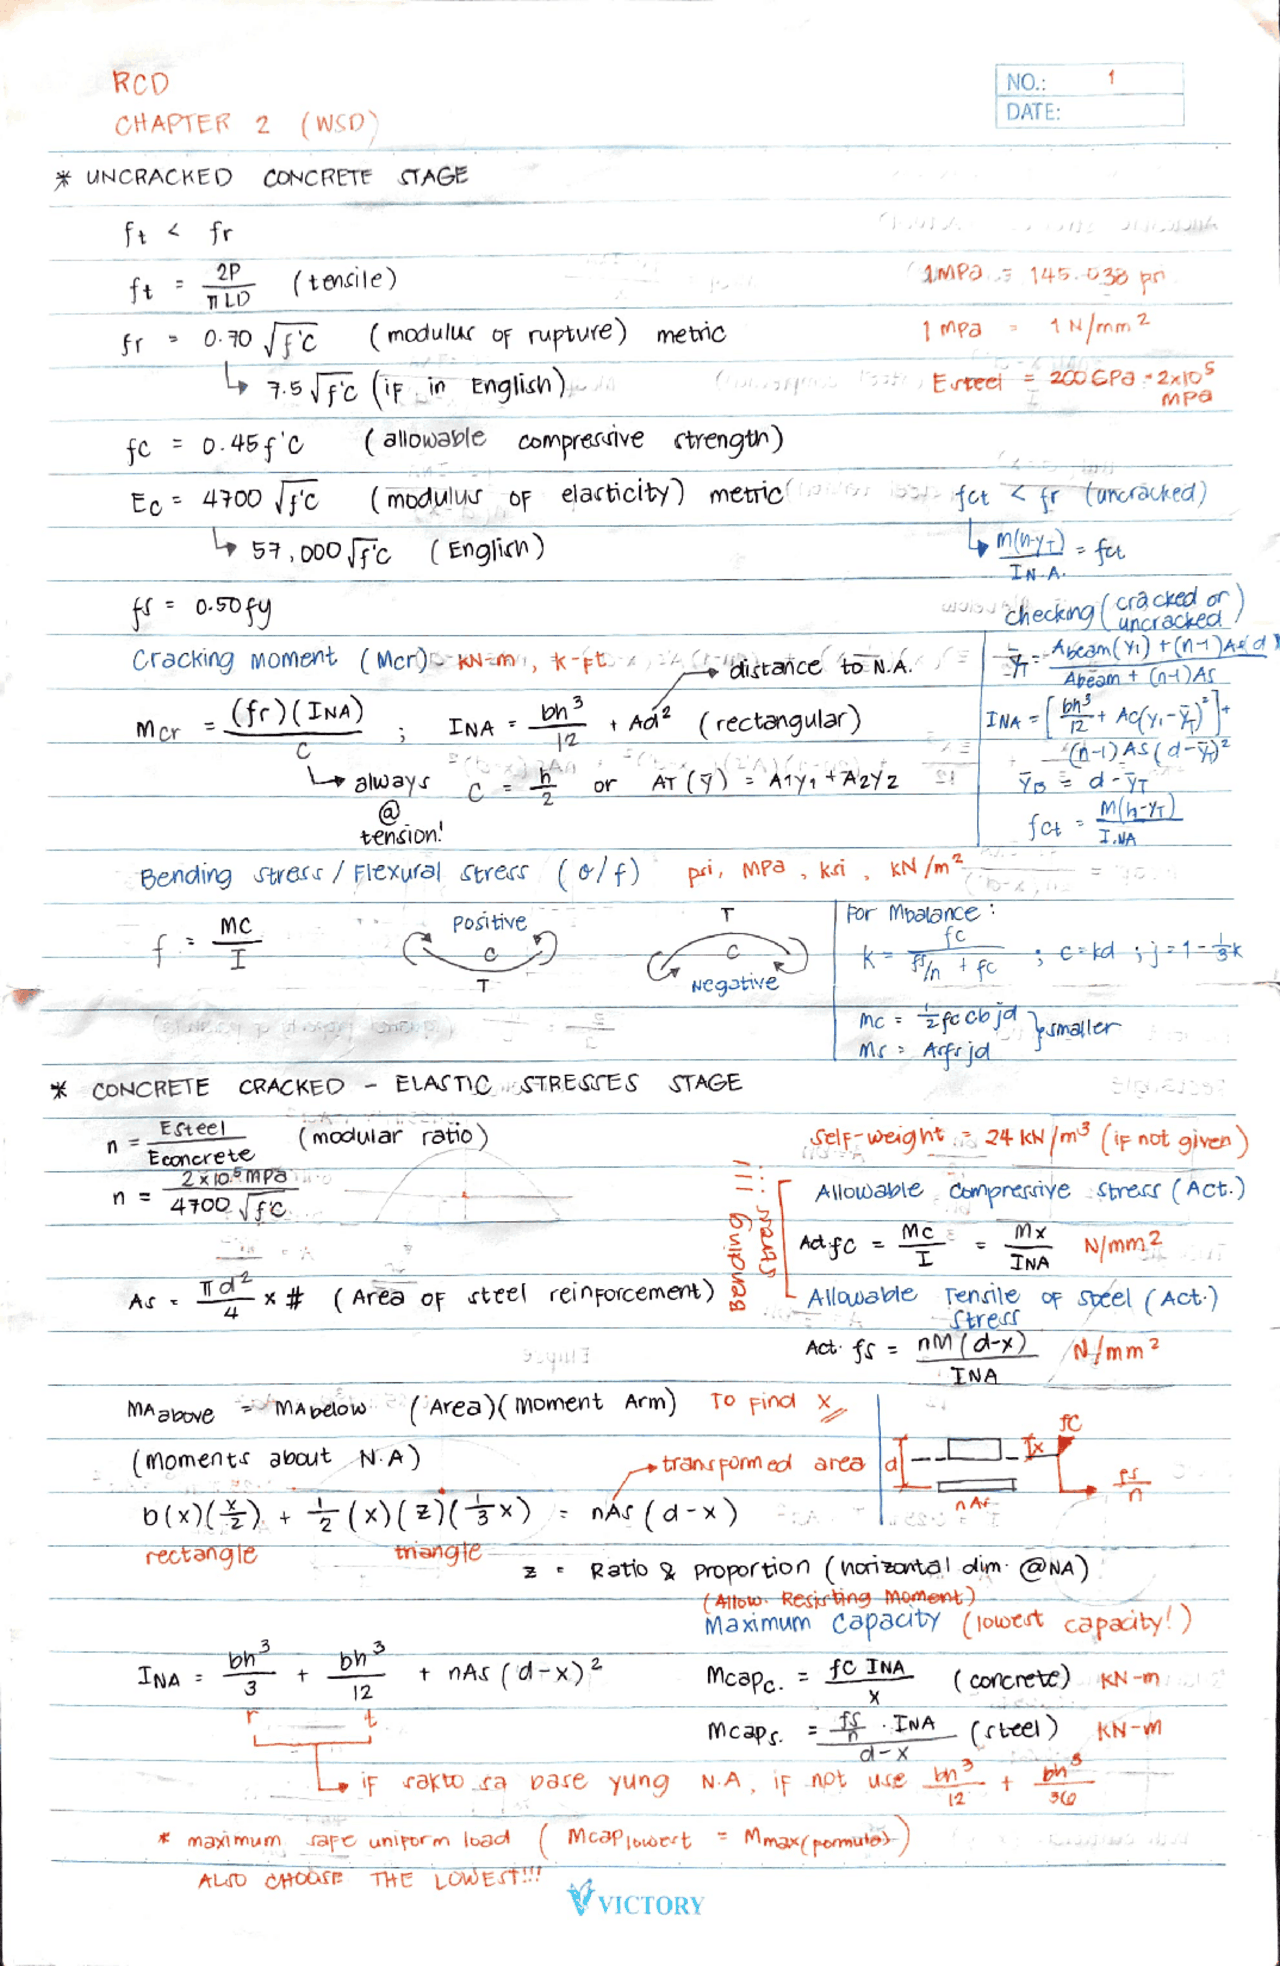 RCD
CHAPTER 2 (WSD)
NO.: 1
DATE:
* UNCRACKED CONCRETE STAGE
ft < fr
ft = 2P / πLD (tensile)
1MPa = 145.038 psi
fr = 0.70 √f'c (modulus of rupture) metric
1 mpa = 1 N/mm²
↳ 7.5 √f'c (if in English)
Esteel = 200 GPa = 2x10⁵ MPa
fc = 0.45 f'c (allowable compressive strength)
Ec = 4700 √f'c (modulus of elasticity) metric
fct < fr (uncracked)
↳ 57,000 √f'c (English)
↳ M(h-yT) / IN.A. = fct
fs = 0.50 fy
checking (cracked or uncracked)
Cracking Moment (Mcr) = kN-m, k-ft
→ distance to N.A.
ȳT = Abeam(y1) + (n-1)As(d) / Abeam + (n-1)As
Mcr = (fr)(INA) / C ; INA = bh³/12 + Ad² (rectangular)
INA = [bh³/12 + Ac(y1-ȳT)²] + (n-1)As(d-ȳT)²
↳ always @ tension!
C = h/2 or AT(ȳ) = A1y1 + A2y2
ȳB = d - ȳT
fct = M(h-yT) / I.NA
Bending stress / Flexural stress (σ/f) psi, MPa, ksi, kN/m²
f = MC / I
Positive
C
T
T
C
Negative
For Mbalance:
k = fc / fs/n + fc ; c = kd ; j = 1 - 1/3 k
Mc = 1/2 fc c b jd
Ms = Asfs jd
} smaller
* CONCRETE CRACKED - ELASTIC STRESSES STAGE
n = Esteel / Econcrete (modular ratio)
self-weight = 24 kN/m³ (if not given)
n = 2x10⁵ MPa / 4700 √f'c
Bending stress !!!
Allowable Compressive Stress (Act.)
Act. fc = Mc / I = Mx / INA N/mm²
As = πd²/4 x # (Area of steel reinforcement)
Allowable Tensile Stress of Steel (Act.)
Act. fs = nM(d-x) / INA N/mm²
MAabove = MAbelow (Area)(Moment Arm) To Find x
(moments about N.A)
→ transformed area
d
x
fc
fs/n
nAs
b(x)(x/2) + 1/2 (x)(z)(1/3 x) = nAs (d-x)
rectangle
triangle
z = Ratio & Proportion (horizontal dim. @NA)
(Allow. Resisting Moment)
Maximum Capacity (lowest capacity!)
INA = bh³/3 + bh³/12 + nAs (d-x)²
r
t
Mcapc. = fc INA / x (concrete) kN-m
Mcaps. = fs/n . INA / d-x (steel) kN-m
↳ if sakto sa base yung N.A, if not use bh³/12 + bh³/36
* maximum safe uniform load (Mcap lowest = Mmax (formulas))
ALSO CHOOSE THE LOWEST!!!
VICTORY